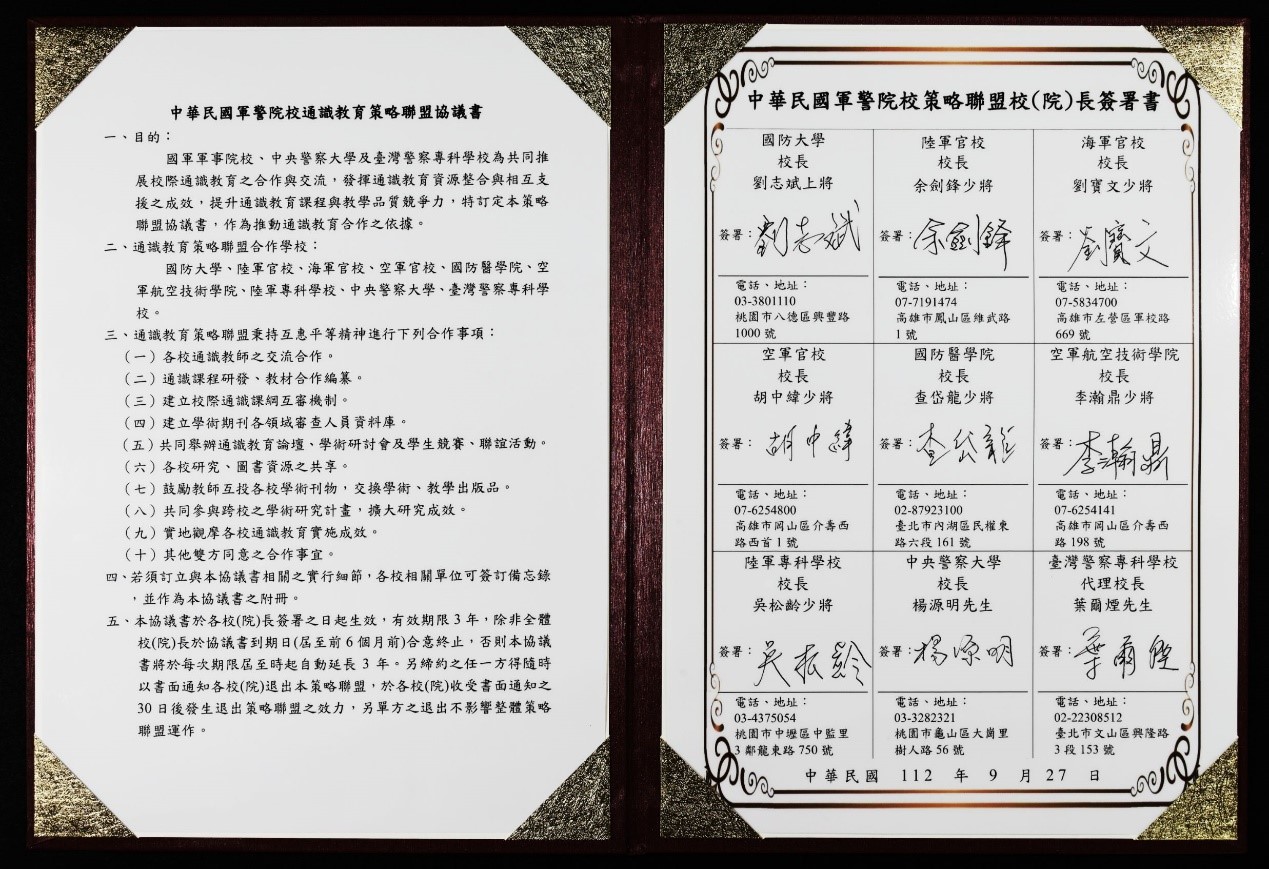 中華民國軍警院校通識教育策略聯盟協議書
一、目的：
國軍軍事院校、中央警察大學及臺灣警察專科學校為共同推
展校際通識教育之合作與交流，發揮通識教育資源整合與相互支
援之成效，提升通識教育課程與教學品質競爭力，特訂定本策略
聯盟協議書，作為推動通識教育合作之依據。
二、通識教育策略聯盟合作學校：
國防大學、陸軍官校、海軍官校、空軍官校、國防醫學院、空
軍航空技術學院、陸軍專科學校、中央警察大學、臺灣警察專科學
校。
三、通識教育策略聯盟秉持互惠平等精神進行下列合作事項：
（一）各校通識教師之交流合作。
（二）通識課程研發、教材合作編纂。
（三）建立校際通識課綱互審機制。
（四）建立學術期刊各領域審查人員資料庫。
（五）共同舉辦通識教育論壇、學術研討會及學生競賽、聯誼活動。
（六）各校研究、圖書資源之共享。
（七）鼓勵教師互投各校學術刊物，交換學術、教學出版品。
（八）共同參與跨校之學術研究計畫，擴大研究成效。
（九）實地觀摩各校通識教育實施成效。
（十）其他雙方同意之合作事宜。
四、若須訂立與本協議書相關之實行細節，各校相關單位可簽訂備忘錄
，並作為本協議書之附冊。
五、本協議書於各校(院)長簽署之日起生效，有效期限 3 年，除非全體
校(院)長於協議書到期日(屆至前 6 個月前)合意終止，否則本協議
書將於每次期限屆至時起自動延長 3 年。另締約之任一方得隨時
以書面通知各校(院)退出本策略聯盟，於各校(院)收受書面通知之
30 日後發生退出策略聯盟之效力，另單方之退出不影響整體策略
聯盟運作。
中華民國軍警院校策略聯盟校(院)長簽署書
國防大學
校長
劉志斌上將
簽署：劉志斌
電話、地址：
03-3801110
桃園市八德區興豐路
1000 號
陸軍官校
校長
余劍鋒少將
簽署：余劍鋒
電話、地址：
07-7191474
高雄市鳳山區維武路
1 號
海軍官校
校長
劉寶文少將
簽署：劉寶文
電話、地址：
07-5834700
高雄市左營區軍校路
669 號
空軍官校
校長
胡中緯少將
簽署：胡中緯
電話、地址：
07-6254800
高雄市岡山區介壽西
路西首 1 號
國防醫學院
校長
查岱龍少將
簽署：查岱龍
電話、地址：
02-87923100
臺北市內湖區民權東
路六段 161 號
空軍航空技術學院
校長
李瀚鼎少將
簽署：李瀚鼎
電話、地址：
07-6254141
高雄市岡山區介壽西
路 198 號
陸軍專科學校
校長
吳松齡少將
簽署：吳松齡
電話、地址：
03-4375054
桃園市中壢區中監里
3 鄰龍東路 750 號
中央警察大學
校長
楊源明先生
簽署：楊源明
電話、地址：
03-3282321
桃園市龜山區大崗里
樹人路 56 號
臺灣警察專科學校
代理校長
葉爾煙先生
簽署：葉爾煙
電話、地址：
02-22308512
臺北市文山區興隆路
3 段 153 號
中華民國 112 年 9 月 27 日